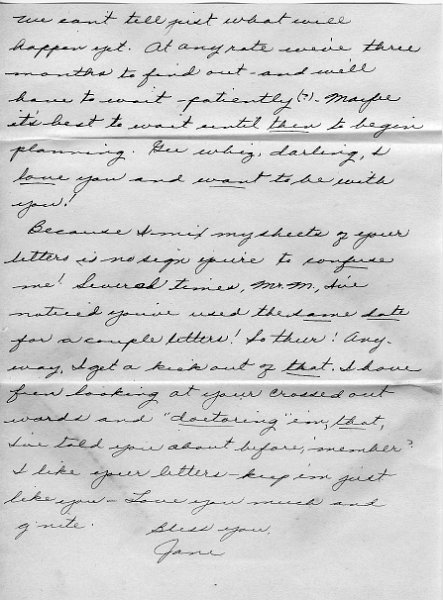 We can't tell just what will
happen yet. At any rate we've three
months to find out - and we'll
have to wait - patiently (?). Maybe
it's best to wait until then to begin
planning. Gee whiz, darling, I
love you and want to be with
you!
Because I mix my sheets of your
letters is no sign you're to confuse
me! Several times, Mr. M., I've
noticed you've used the same date
for a couple letters! So thur! Any-
way, I get a kick out of that. I have
fun looking at your crossed out
words and "doctoring" 'em; that,
I've told you about before, 'member?
I like your letters - keep 'em just
like you - Love you much and
g'nite.
Bless you,
Jane